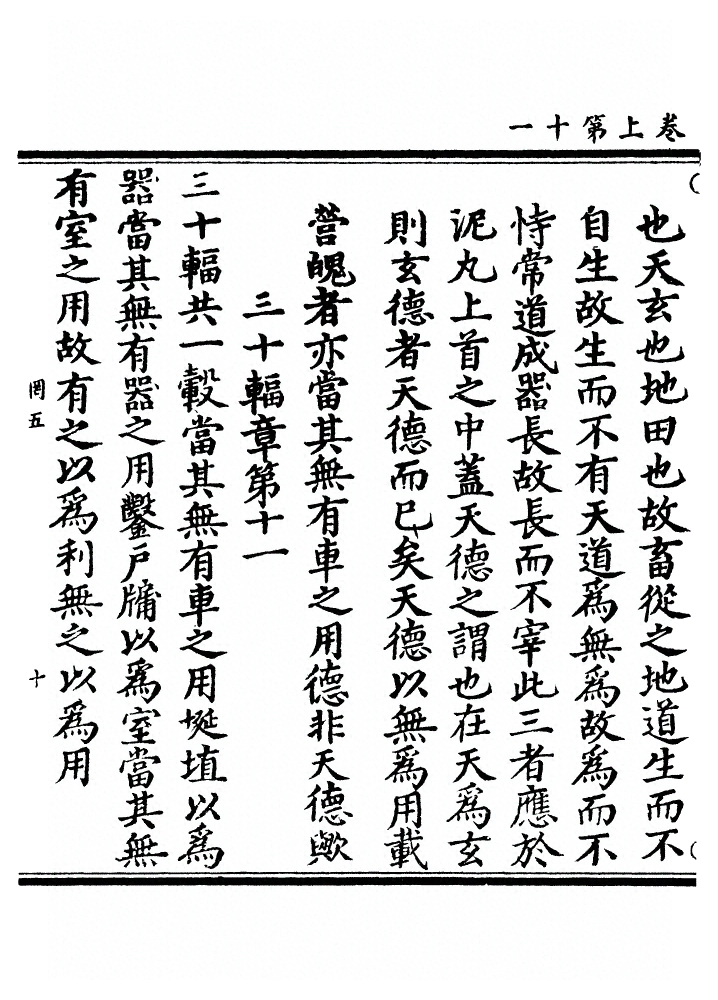 卷上第十一
也天玄也地田也故畜從之地道生而不
自生故生而不有天道爲無爲故爲而不
恃常道成器長故長而不宰此三者應於
泥丸上首之中蓋天德之謂也在天爲玄
則玄德者天德而已矣天德以無爲用載
營魄者亦當其無有車之用德非天德歟
三十輻章第十一
三十輻共一轂當其無有車之用埏埴以爲
器當其無有器之用鑿戸牖以爲室當其無
有室之用故有之以爲利無之以爲用
罔五
十